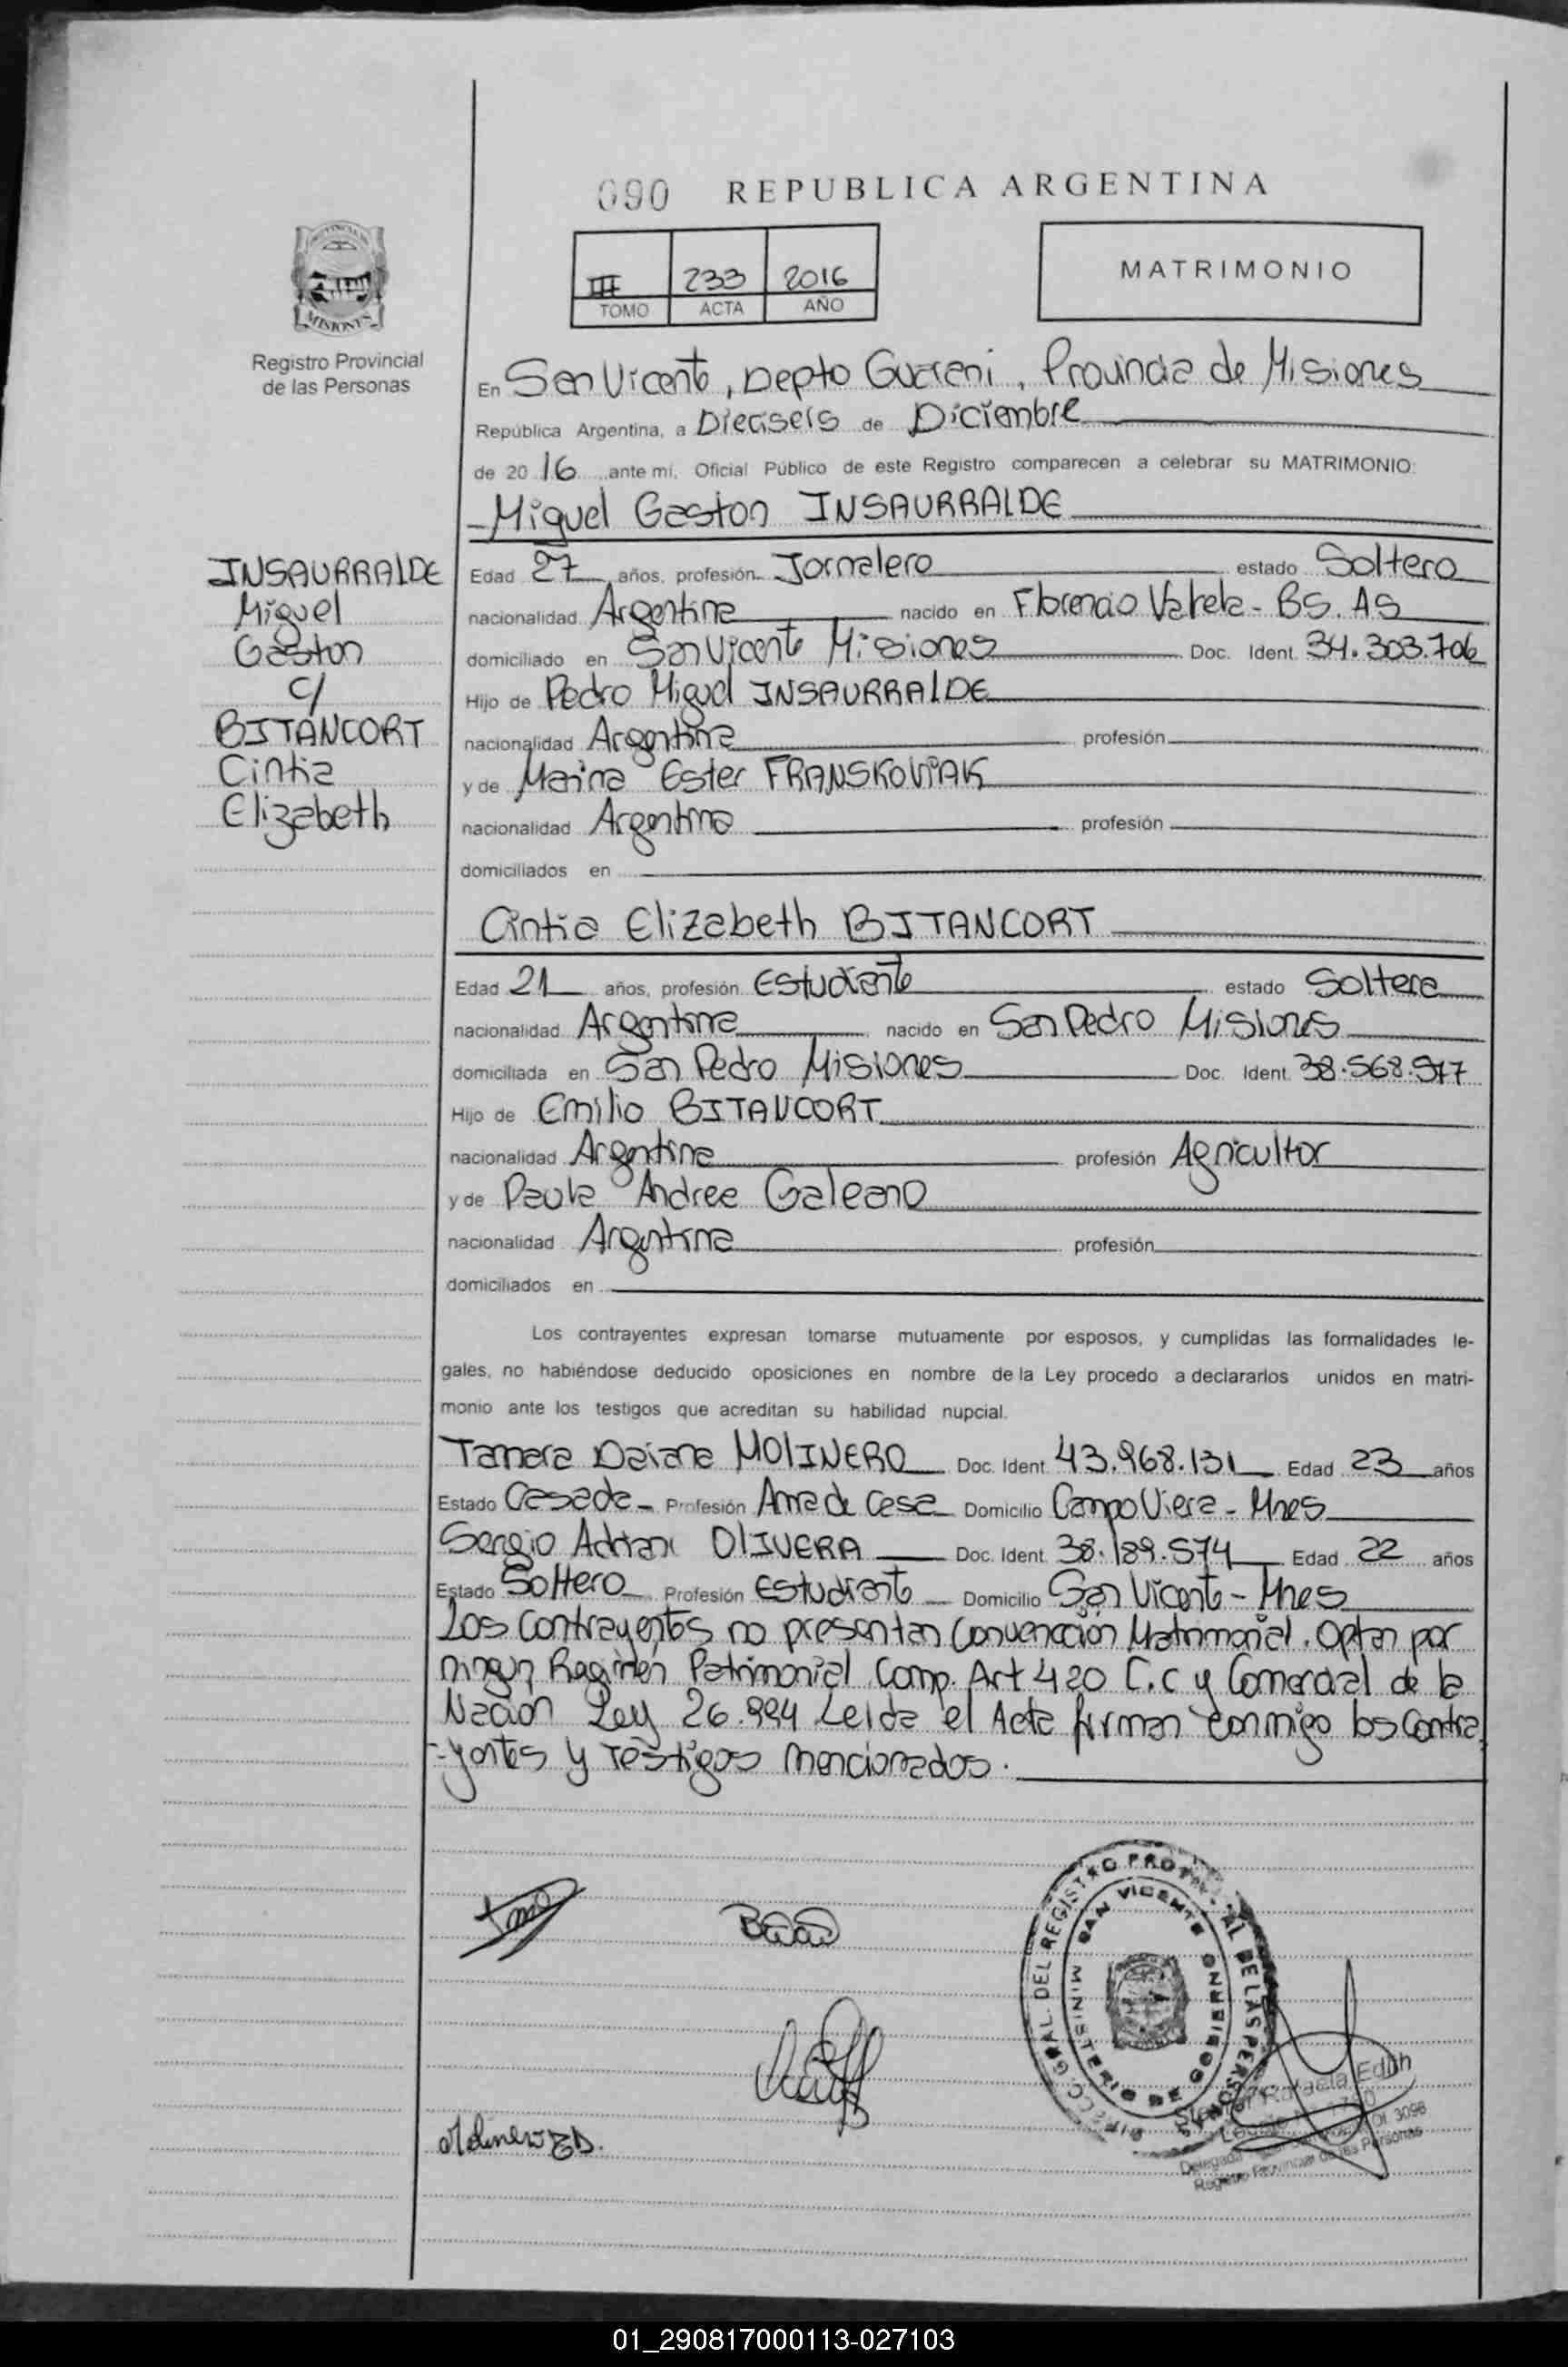 090 REPUBLICA ARGENTINA
III 233 2016
TOMO ACTA AÑO
MATRIMONIO
MISIONES
Registro Provincial
de las Personas
En San Vicente, Depto Guarani, Provincia de Misiones
República Argentina, a Dieciseis de Diciembre
de 20 16 ante mí, Oficial Público de este Registro comparecen a celebrar su MATRIMONIO:
Miguel Gaston INSAURRALDE
INSAURRALDE
Miguel
Gaston
c/
BITANCORT
Cintia
Elizabeth
Edad 27 años, profesión Jornalero estado Soltero
nacionalidad Argentina nacido en Florencio Varela - BS. AS
domiciliado en San Vicente Misiones Doc. Ident. 34.303.706
Hijo de Pedro Miguel INSAURRALDE
nacionalidad Argentina profesión
y de Marina Ester FRANSKOWIAK
nacionalidad Argentina profesión
domiciliados en
Cintia Elizabeth BITANCORT
Edad 21 años, profesión Estudiante estado Soltera
nacionalidad Argentina nacido en San Pedro Misiones
domiciliada en San Pedro Misiones Doc. Ident. 38.568.977
Hijo de Emilio BITANCORT
nacionalidad Argentina profesión Agricultor
y de Paula Andrea Galeano
nacionalidad Argentina profesión
domiciliados en
Los contrayentes expresan tomarse mutuamente por esposos, y cumplidas las formalidades le-
gales, no habiéndose deducido oposiciones en nombre de la Ley procedo a declararlos unidos en matri-
monio ante los testigos que acreditan su habilidad nupcial.
Tamara Daiana MOLINERO Doc. Ident. 43.968.131 Edad 23 años
Estado Casada - Profesión Ama de Casa Domicilio Campo Viera - Mnes
Sergio Adrian OLIVERA Doc. Ident. 38.189.574 Edad 22 años
Estado Soltero Profesión Estudiante Domicilio San Vicente - Mnes
Los Contrayentes no presentan Convención Matrimonial. Optan por
ningun Regimen Patrimonial Comp. Art 420 C.C y Comercial de la
Nacion Ley 26.994 Leida el Acta firman conmigo los Contra
-yentes y Testigos mencionados.
SAN VICENTE
MINISTERIO DE GOBIERNO
Rafaela Edith
Registro Provincial de las Personas
01_290817000113-027103